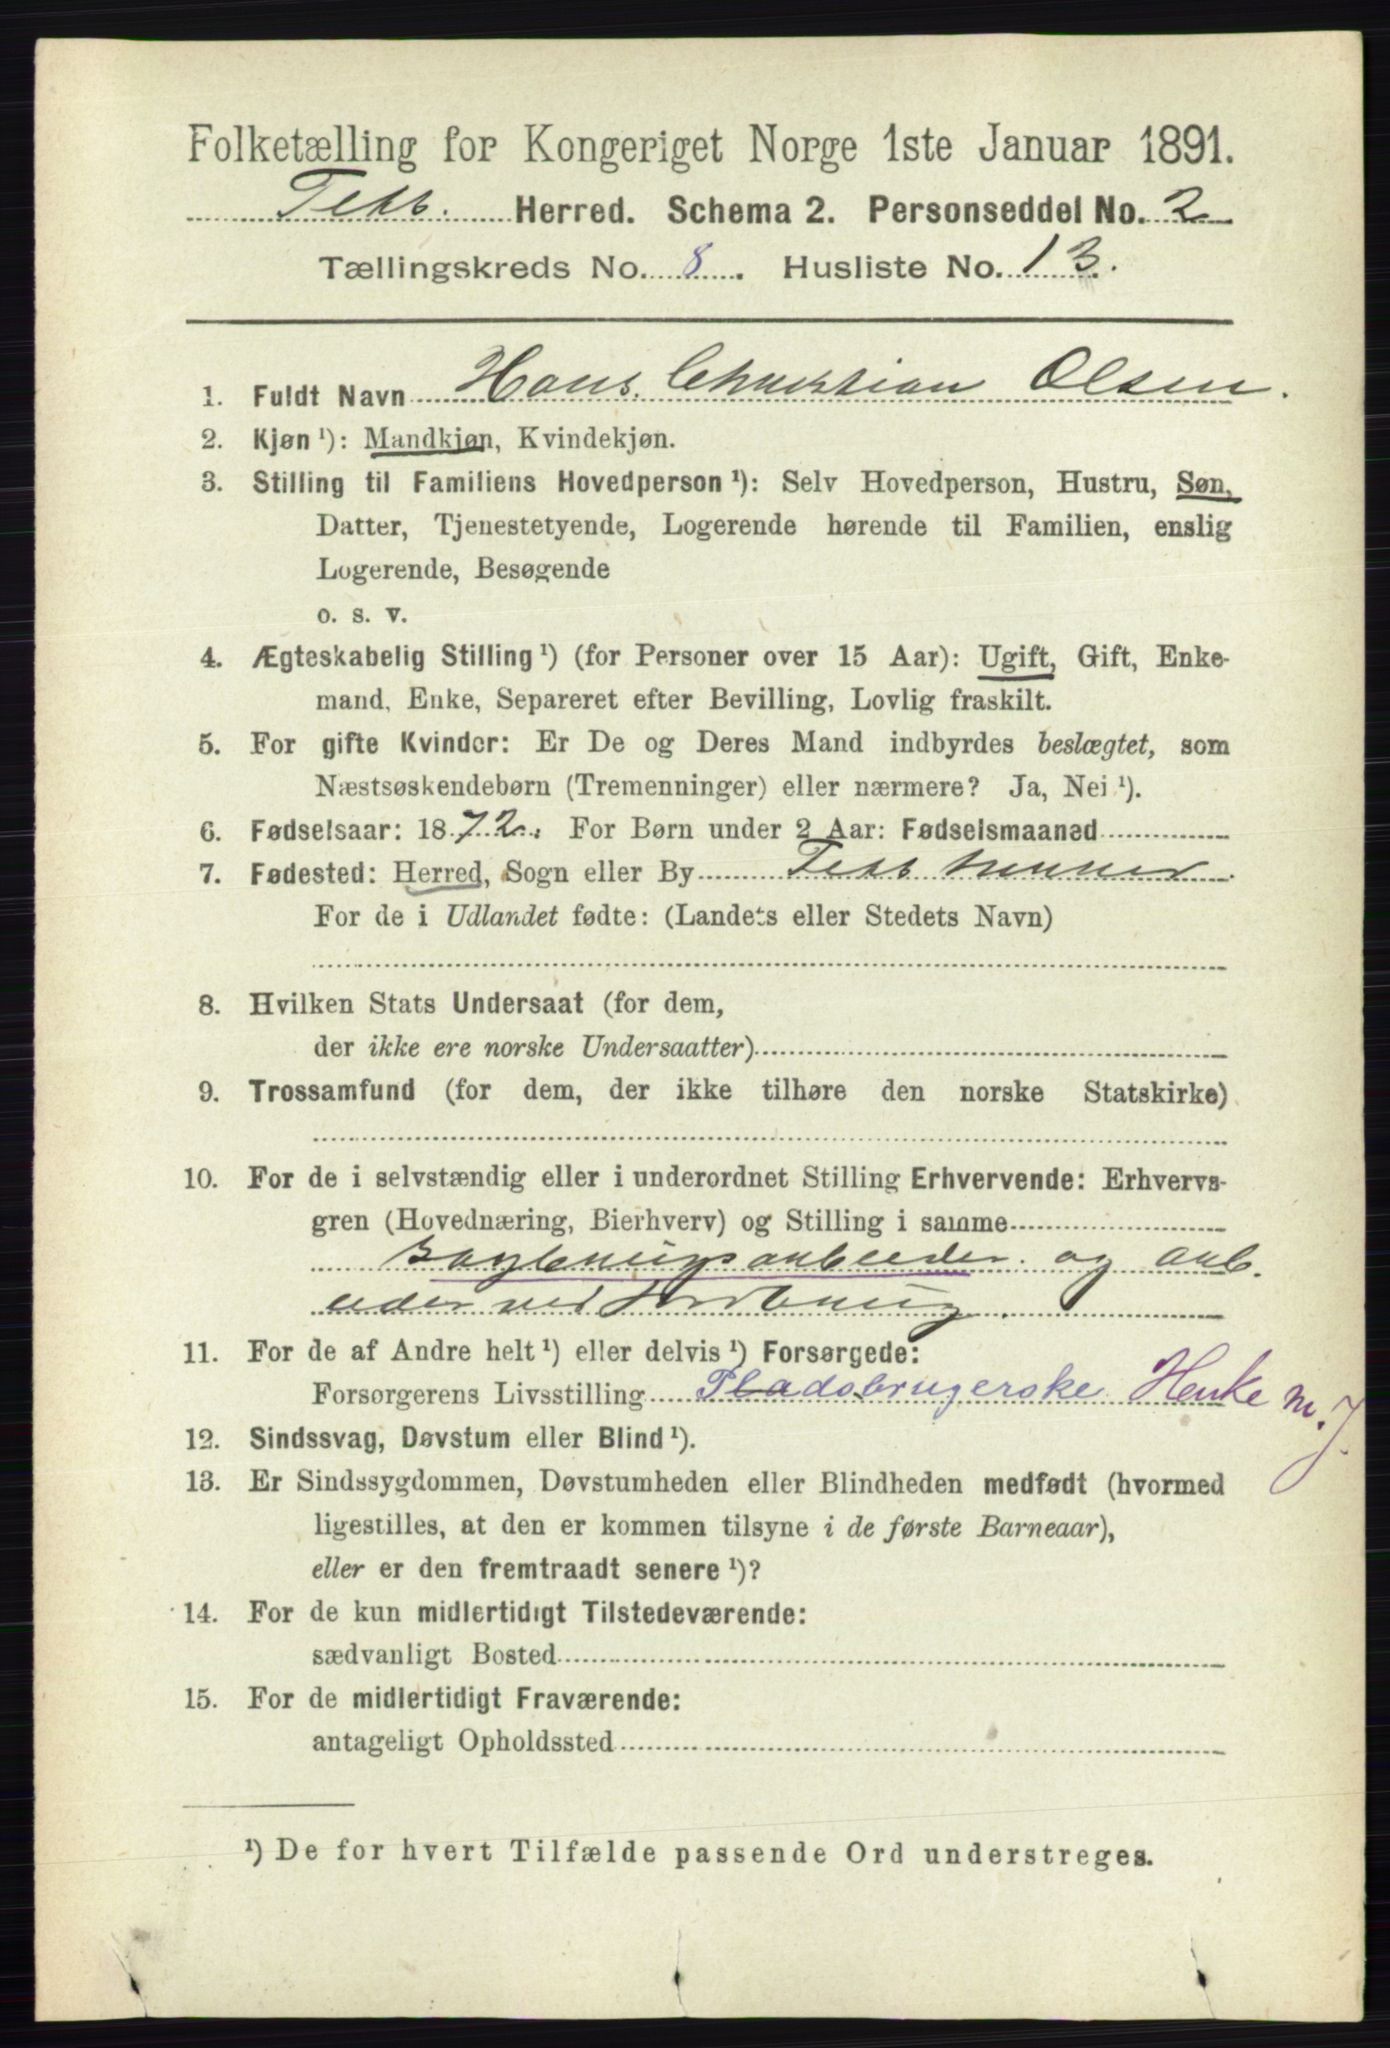 Folketælling for Kongeriget Norge 1ste Januar 1891.
Herred. Schema 2. Personseddel No. 2
Tællingskreds No. 8. Husliste No. 13.
1. Fuldt Navn Hans Christian Olsen.
2. Kjøn ¹): Mandkjøn, Kvindekjøn.
3. Stilling til Familiens Hovedperson ¹): Selv Hovedperson, Hustru, Søn,
Datter, Tjenestetyende, Logerende hørende til Familien, enslig
Logerende, Besøgende
o. s. v.
4. Ægteskabelig Stilling ¹) (for Personer over 15 Aar): Ugift, Gift, Enke-
mand, Enke, Separeret efter Bevilling, Lovlig fraskilt.
5. For gifte Kvinder: Er De og Deres Mand indbyrdes beslægtet, som
Næstsøskendebørn (Tremenninger) eller nærmere? Ja, Nei ¹).
6. Fødselsaar: 1872. For Børn under 2 Aar: Fødselsmaaned
7. Fødested: Herred, Sogn eller By
For de i Udlandet fødte: (Landets eller Stedets Navn)
8. Hvilken Stats Undersaat (for dem,
der ikke ere norske Undersaatter)
9. Trossamfund (for dem, der ikke tilhøre den norske Statskirke)
10. For de i selvstændig eller i underordnet Stilling Erhvervende: Erhvervs-
gren (Hovednæring, Bierhverv) og Stilling i samme
og arb.
eider ved Jordbrug.
11. For de af Andre helt ¹) eller delvis ¹) Forsørgede:
Forsørgerens Livsstilling Pladsbrugerske Henke m. J.
12. Sindssvag, Døvstum eller Blind ¹).
13. Er Sindssygdommen, Døvstumheden eller Blindheden medfødt (hvormed
ligestilles, at den er kommen tilsyne i de første Barneaar),
eller er den fremtraadt senere ¹)?
14. For de kun midlertidigt Tilstedeværende:
sædvanligt Bosted
15. For de midlertidigt Fraværende:
antageligt Opholdssted
¹) De for hvert Tilfælde passende Ord understreges.